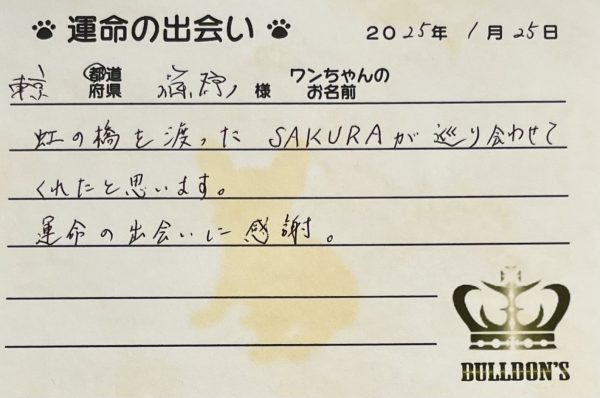 運命の出会い
2025年 1月25日
東京 都道府県 様 ワンちゃんのお名前
虹の橋を渡った SAKURAが巡り合わせて
くれたと思います。
運命の出会いに感謝。
BULLDON'S